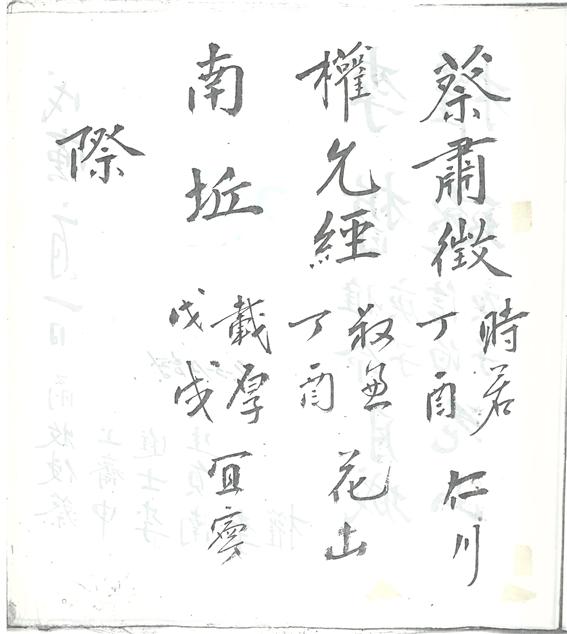 蔡肅徵 時若 丁酉 仁川
權允經 丁酉 花山
南坵 載厚 戊戌 宜寧
際